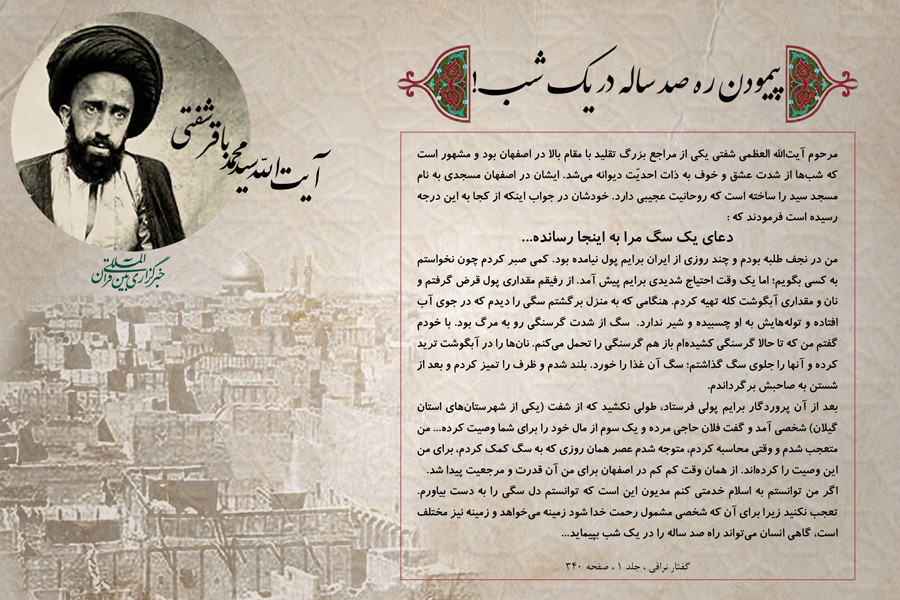 پیمودن ره صد ساله در یک شب!
آیت الله سید محمد باقر شفتی
خبرگزاری بین المللی قرآن
مرحوم آیت‌الله العظمی شفتی یکی از مراجع بزرگ تقلید با مقام بالا در اصفهان بود و مشهور است
که شب‌ها از شدت عشق و خوف به ذات احدیّت دیوانه می‌شد. ایشان در اصفهان مسجدی به نام
مسجد سید را ساخته است که روحانیت عجیبی دارد. خودشان در جواب اینکه از کجا به این درجه
رسیده است فرمودند که :
دعای یک سگ مرا به اینجا رسانده...
من در نجف طلبه بودم و چند روزی از ایران برایم پول نیامده بود. کمی صبر کردم چون نخواستم
به کسی بگویم؛ اما یک وقت احتیاج شدیدی برایم پیش آمد. از رفیقم مقداری پول قرض گرفتم و
نان و مقداری آبگوشت کله تهیه کردم. هنگامی که به منزل برگشتم سگی را دیدم که در جوی آب
افتاده و توله‌هایش به او چسبیده و شیر ندارد. سگ از شدت گرسنگی رو به مرگ بود. با خودم
گفتم من که تا حالا گرسنگی کشیده‌ام باز هم گرسنگی را تحمل می‌کنم. نان‌ها را در آبگوشت ترید
کرده و آنها را جلوی سگ گذاشتم؛ سگ آن غذا را خورد. بلند شدم و ظرف را تمیز کردم و بعد از
شستن به صاحبش برگرداندم.
بعد از آن پروردگار برایم پولی فرستاد، طولی نکشید که از شفت (یکی از شهرستان‌های استان
گیلان) شخصی آمد و گفت فلان حاجی مرده و یک سوم از مال خود را برای شما وصیت کرده... من
متعجب شدم و وقتی محاسبه کردم، متوجه شدم عصر همان روزی که به سگ کمک کردم، برای من
این وصیت را کرده‌اند. از همان وقت کم کم در اصفهان برای من آن قدرت و مرجعیت پیدا شد.
اگر من توانستم به اسلام خدمتی کنم مدیون این است که توانستم دل سگی را به دست بیاورم.
تعجب نکنید زیرا برای آن که شخصی مشمول رحمت خدا شود زمینه می‌خواهد و زمینه نیز مختلف
است، گاهی انسان می‌تواند راه صد ساله را در یک شب بپیماید...
گفتار نراقی ، جلد ۱ ، صفحه ۳۴۰